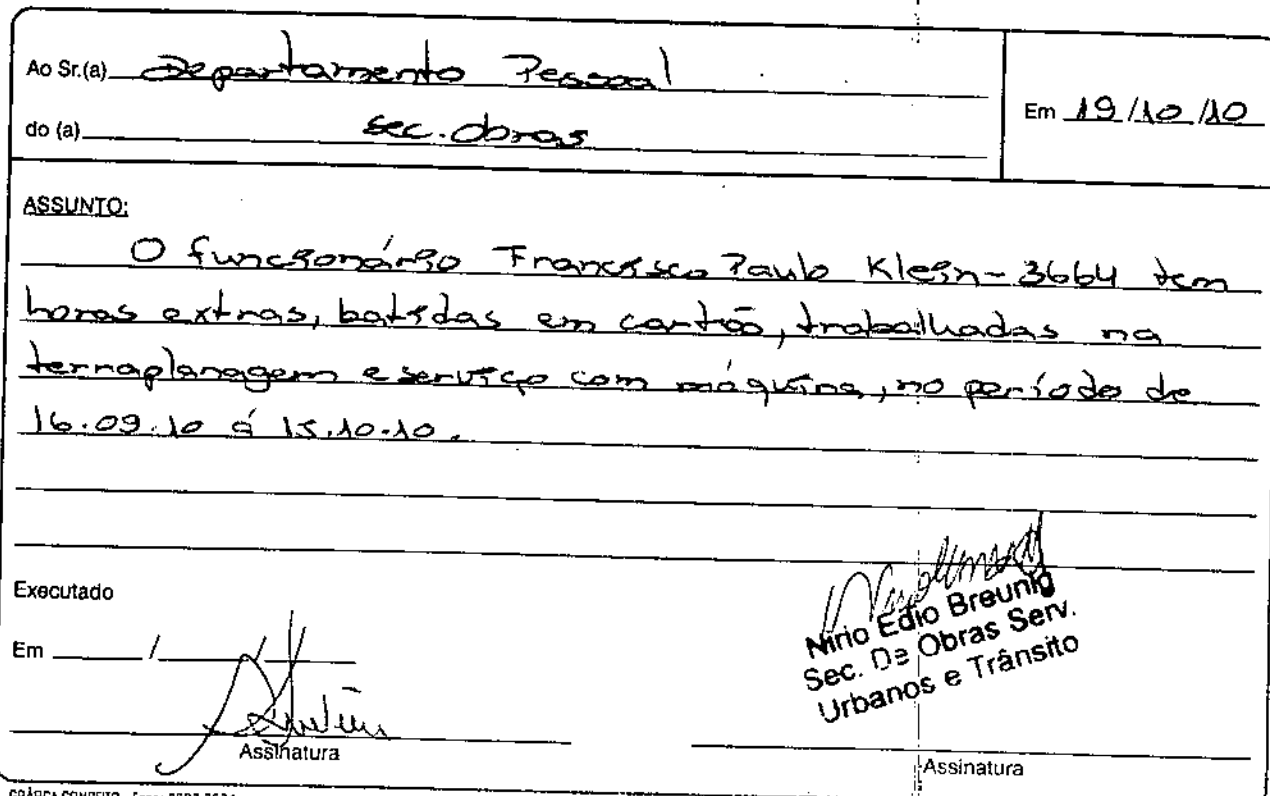 Ao Sr.(a) Departamento Pessoal
do (a) Sec. Obras
Em 19/10/10
ASSUNTO:
O funcionário Francisco Paulo Klein - 3664 tem
horas extras, batidas em cartão, trabalhadas na
terraplanagem e serviço com máquina, no período de
16.09.10 á 15.10.10.
Executado
Em / /
Assinatura
Nirio Edio Breunig
Sec. De Obras Serv.
Urbanos e Trânsito
Assinatura